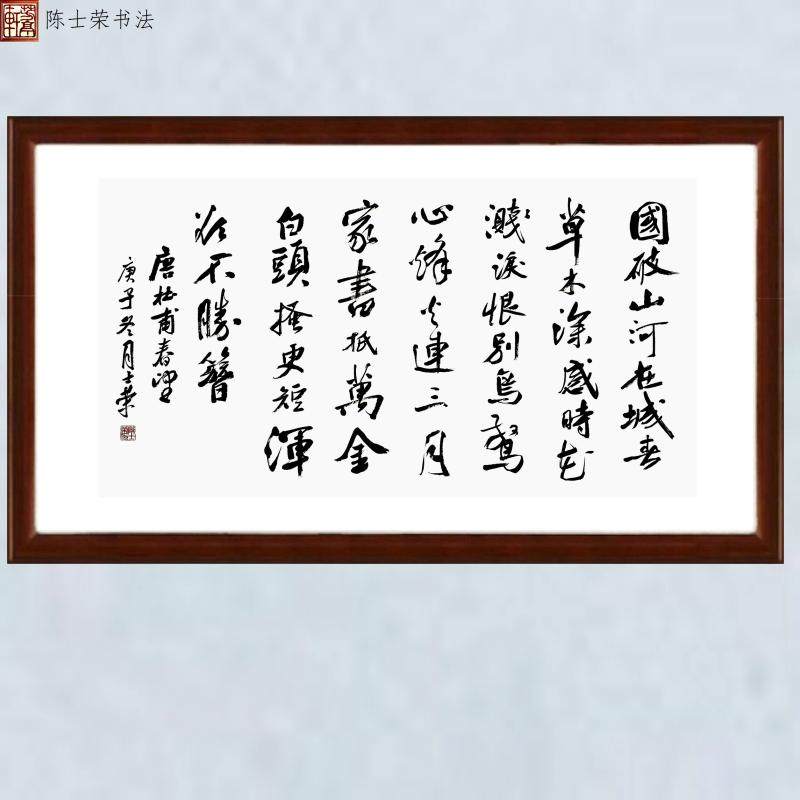 陈士荣书法
國破山河在城春
草木深感時花
濺淚恨别鳥驚
心烽火連三月
家書抵萬金
白頭搔更短渾
欲不勝簪
唐杜甫春望
庚子冬月士荣